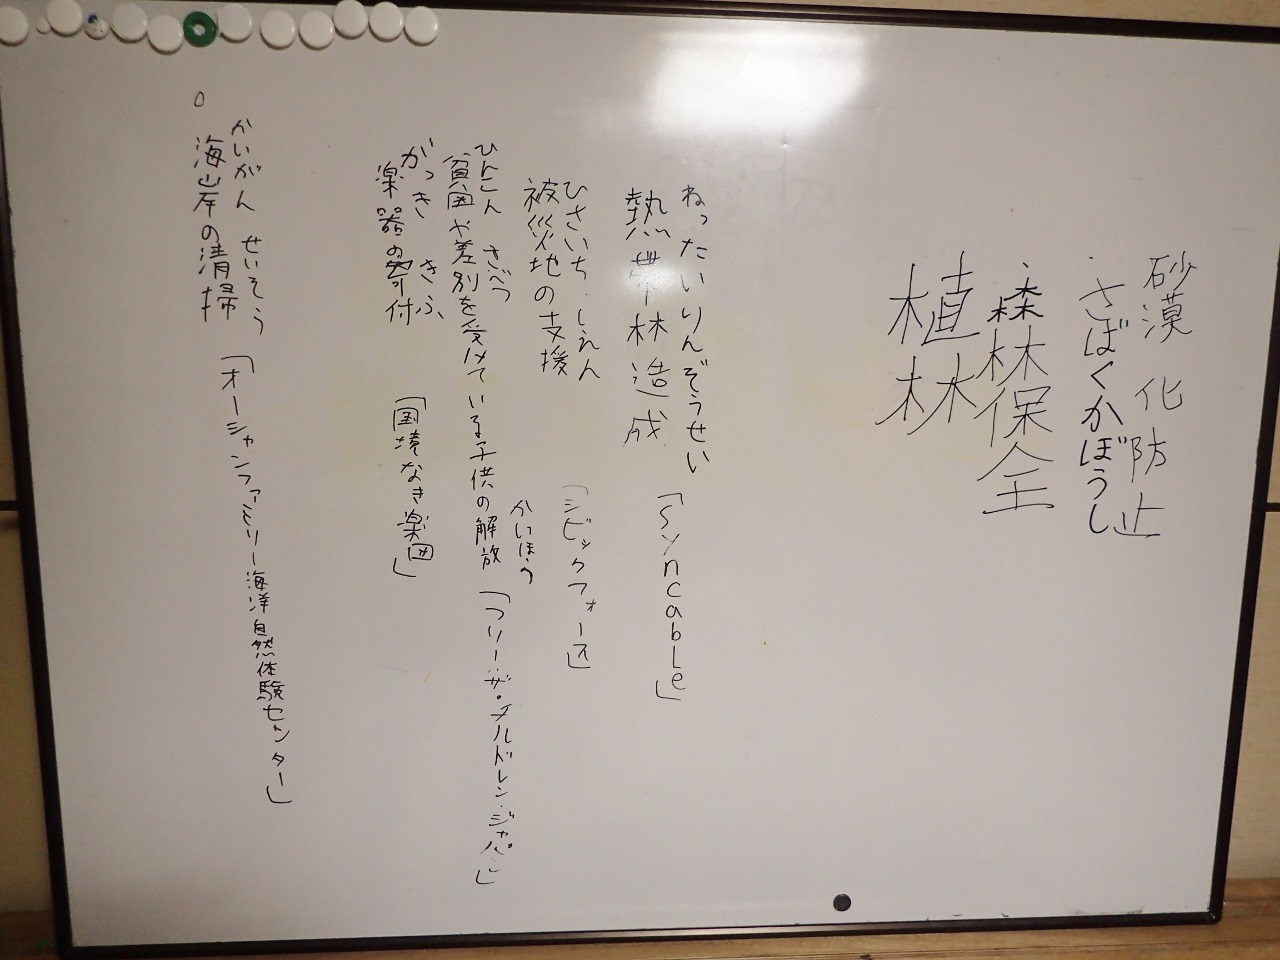 砂漠化防止
さばくかぼうし
森林保全
植林
ねったいりんぞうせい
熱帯林造成「Syncable」
ひさいち しえん
被災地の支援「シビックフォース」
ひんこん さべつ かいほう
貧困や差別を受けている子供の解放「フリー・ザ・チルドレン・ジャパン」
がっき きふ
楽器の寄付「国境なき楽団」
かいがん せいそう
海岸の清掃「オーシャンファミリー海洋自然体験センター」